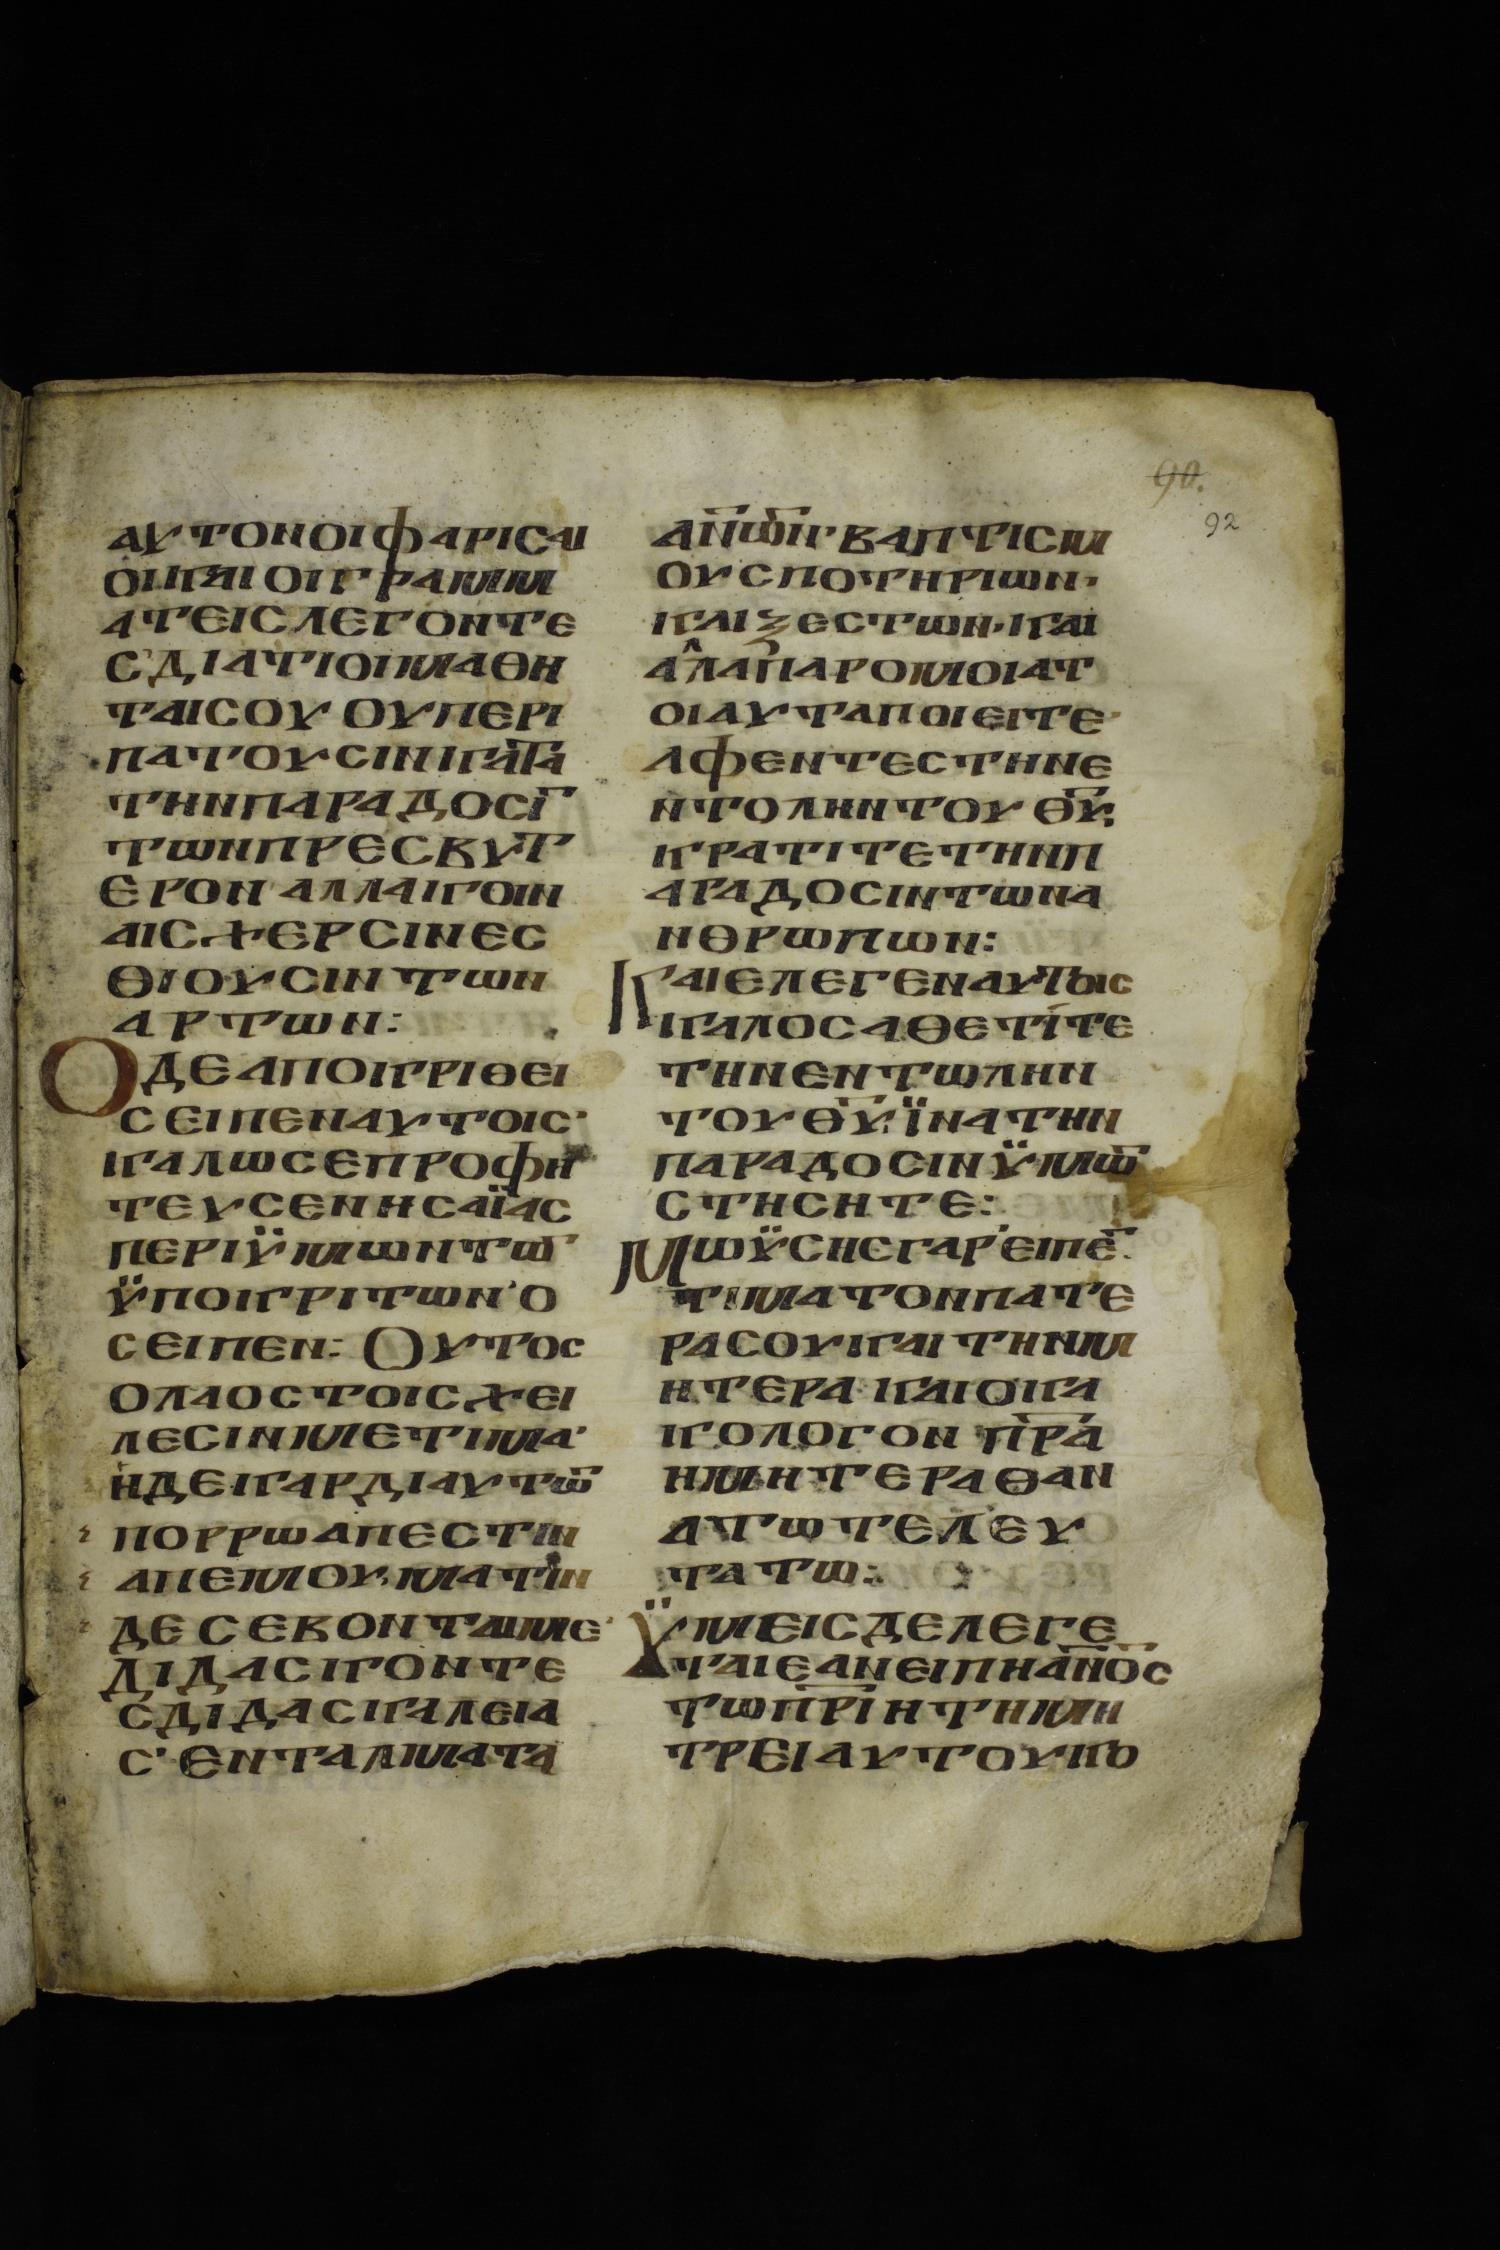 90.
92
ΑΥΤΟΝΟΙΦΑΡΙΣΑΙ
ΟΙΚΑΙΟΙΓΡΑΜΜ
ΑΤΕΙΣΛΕΓΟΝΤΕ
Σ·ΔΙΑΤΙΟΙΜΑΘΗ
ΤΑΙΣΟΥΟΥΠΕΡΙ
ΠΑΤΟΥΣΙΝΚΑΤΑ
ΤΗΝΠΑΡΑΔΟΣΙ̅
ΤΩΝΠΡΕΣΒΥΤ
ΕΡΟΝ·ΑΛΛΑΚΟΙΝ
ΑΙΣΧΕΡΣΙΝΕΣ
ΘΙΟΥΣΙΝΤΩΝ
ΑΡΤΩΝ:
ΟΔΕΑΠΟΚΡΙΘΕΙ
ΣΕΙΠΕΝΑΥΤΟΙΣ·
ΚΑΛΩΣΕΠΡΟΦΗ
ΤΕΥΣΕΝΗΣΑΪΑΣ
ΠΕΡΙΫΜΩΝΤΩ̅
ΫΠΟΚΡΙΤΩΝ·Ο
ΣΕΙΠΕΝ: ΟΥΤΟΣ
ΟΛΑΟΣΤΟΙΣΧΕΙ
ΛΕΣΙΝΜΕΤΙΜΑ·
ΗΔΕΚΑΡΔΙΑΥΤΩ̅
ΠΟΡΡΩΑΠΕΣΤΙΝ
ΑΠΕΜΟΥ·ΜΑΤΙΝ
ΔΕΣΕΒΟΝΤΑΙΜΕ·
ΔΙΔΑΣΚΟΝΤΕ
ΣΔΙΔΑΣΚΑΛΕΙΑ
Σ·ΕΝΤΑΛΜΑΤΑ
ΑΝ̅Ω̅Ν̅·ΒΑΠΤΙΣΜ
ΟΥΣΠΟΤΗΡΙΩΝ·
ΚΑΙΞΕΣΤΩΝ·ΚΑΙ
ΑΛΛΑΠΑΡΟΜΟΙΑΤ
ΟΙΑΥΤΑΠΟΙΕΙΤΕ·
ΑΦΕΝΤΕΣΤΗΝΕ
ΝΤΟΛΗΝΤΟΥΘ̅Υ̅·
ΚΡΑΤΙΤΕΤΗΝΠ
ΑΡΑΔΟΣΙΝΤΩΝΑ
ΝΘΡΩΠΩΝ:
ΚΑΙΕΛΕΓΕΝΑΥΤΟΙΣ
ΚΑΛΟΣΑΘΕΤΙΤΕ
ΤΗΝΕΝΤΩΛΗΝ
ΤΟΥΘ̅Υ̅·ΪΝΑΤΗΝ
ΠΑΡΑΔΟΣΙΝΫΜΩ̅
ΣΤΗΣΗΤΕ:
ΜΩΫΣΗΣΓΑΡ·ΕΙΠΕ̅·
ΤΙΜΑΤΟΝΠΑΤΕ
ΡΑΣΟΥΚΑΙΤΗΝΜ
ΗΤΕΡΑ·ΚΑΙΟΚΑ
ΚΟΛΟΓΟΝΠ̅Ρ̅Α̅
ΗΜΗΤΕΡΑΘΑΝ
ΑΤΩΤΕΛΕΥ
ΤΑΤΩ:
ΫΜΕΙΣΔΕΛΕΓΕ
ΤΑΙΕΑΝΕΙΠΗΑ̅Ν̅Ο̅Σ
ΤΩΠ̅Ρ̅Ι̅ΗΤΗΜΗ
ΤΡΕΙΑΥΤΟΥΚΟ